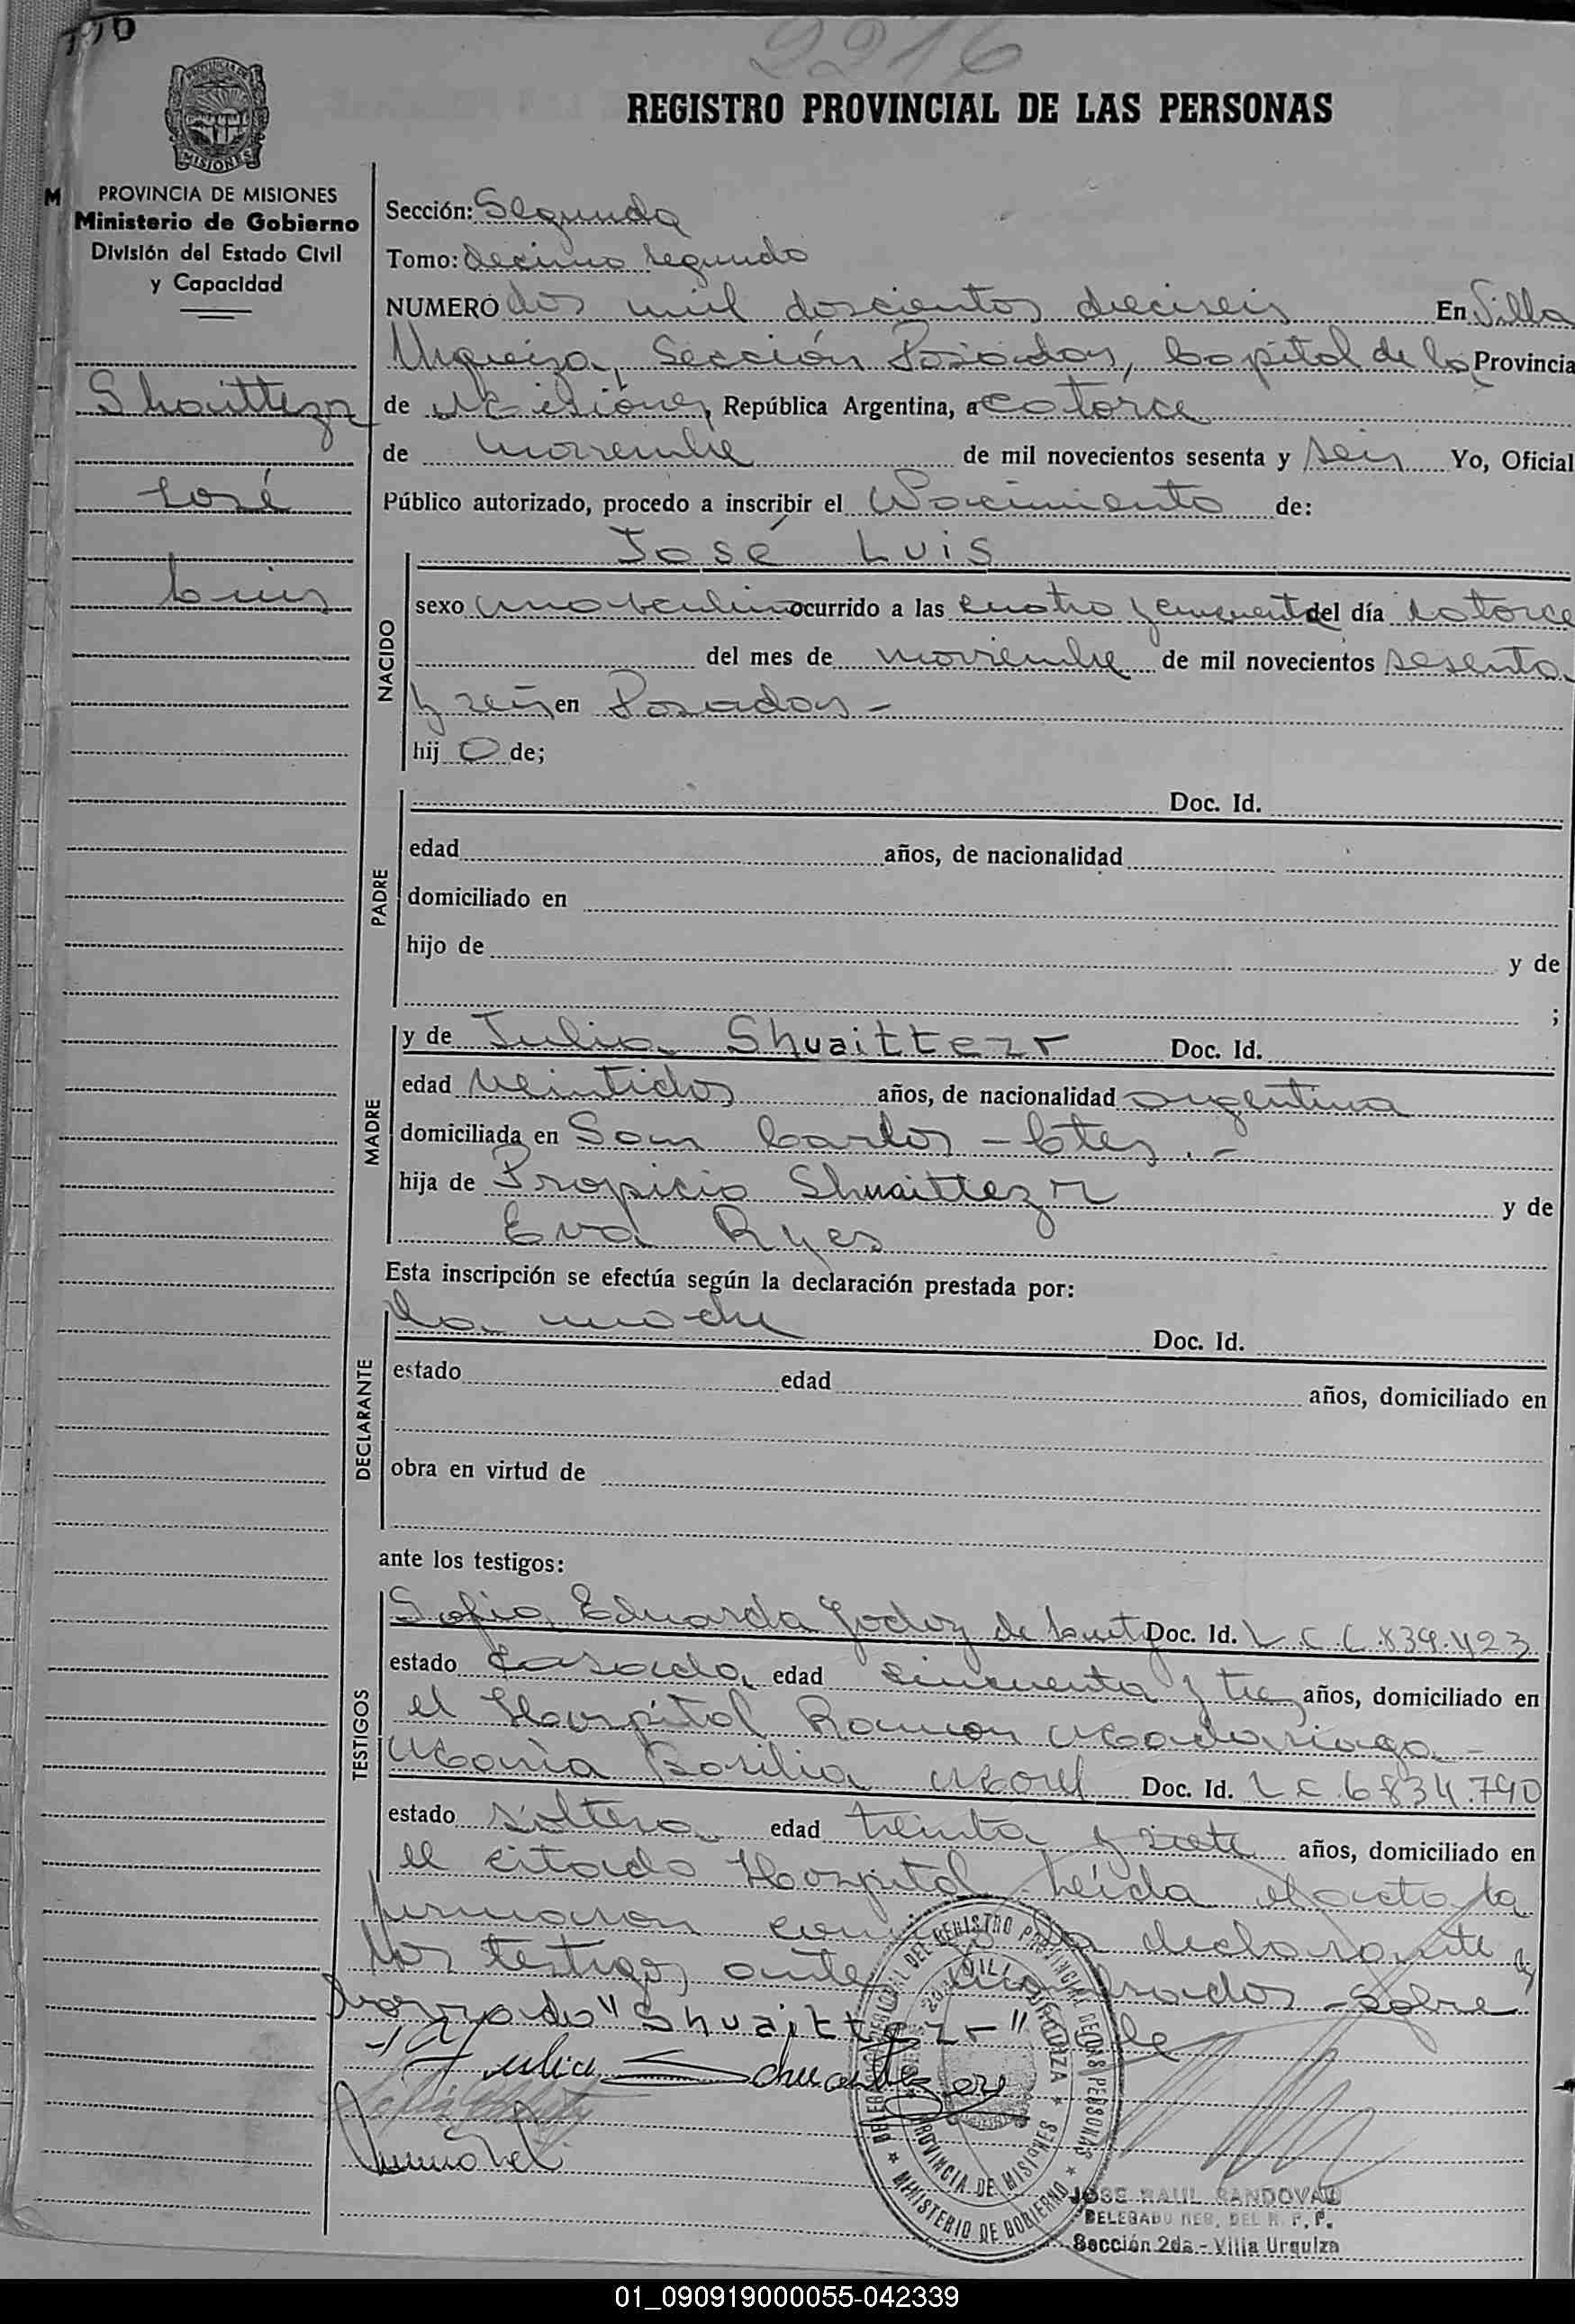 2216
REGISTRO PROVINCIAL DE LAS PERSONAS
PROVINCIA DE MISIONES
Ministerio de Gobierno
División del Estado Civil
y Capacidad
Shaittezr
José
Luis
Sección: Segunda
Tomo: decimo segundo
NUMERO dos mil doscientos dieciseis En Villa
Urquiza, Sección Posadas, Capital de la Provincia
de Misiones, República Argentina, a catorce
de noviembre de mil novecientos sesenta y seis Yo, Oficial
Público autorizado, procedo a inscribir el Nacimiento de:
José Luis
NACIDO
sexo masculino ocurrido a las cuatro y cincuenta del día catorce
del mes de noviembre de mil novecientos sesenta
y seis en Posadas -
hij o de;
PADRE
Doc. Id.
edad años, de nacionalidad
domiciliado en
hijo de y de
;
MADRE
y de Julia Shuaittezr Doc. Id.
edad veintidos años, de nacionalidad argentina
domiciliada en San Carlos - Ctes. -
hija de Propicio Shuaittezr y de
Eva Ryes
Esta inscripción se efectúa según la declaración prestada por:
DECLARANTE
la madre Doc. Id.
estado edad años, domiciliado en
obra en virtud de
ante los testigos:
TESTIGOS
Sofia Eduarda Godoy de Doc. Id. L C 839.423
estado casada edad cincuenta y tres años, domiciliado en
el Hospital Ramon Madariaga -
María Basilia Morel Doc. Id. L C 6834.790
estado soltera edad treinta y siete años, domiciliado en
el citado Hospital. Leída el acta la
firmaron conmigo la declarante y
los testigos ante - Sobre
borrado "Shuaittezr" Vale
Julia
DELEGACION DEL REGISTRO PROVINCIAL DE LAS PERSONAS
VILLA URQUIZA
PROVINCIA DE MISIONES
MINISTERIO DE GOBIERNO
JOSE RAUL SANDOVAL
DELEGADO REG. DEL R. P. P.
Sección 2da.- Villa Urquiza
01_090919000055-042339